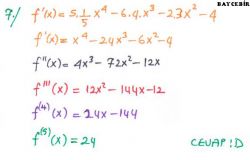 BAYCEBİR
7./ f'(x) = 5.1/5 x⁴ - 6.4x³ - 2.3x² - 4
f'(x) = x⁴ - 24x³ - 6x² - 4
f''(x) = 4x³ - 72x² - 12x
f'''(x) = 12x² - 144x - 12
f⁽⁴⁾(x) = 24x - 144
f⁽⁵⁾(x) = 24
CEVAP: D